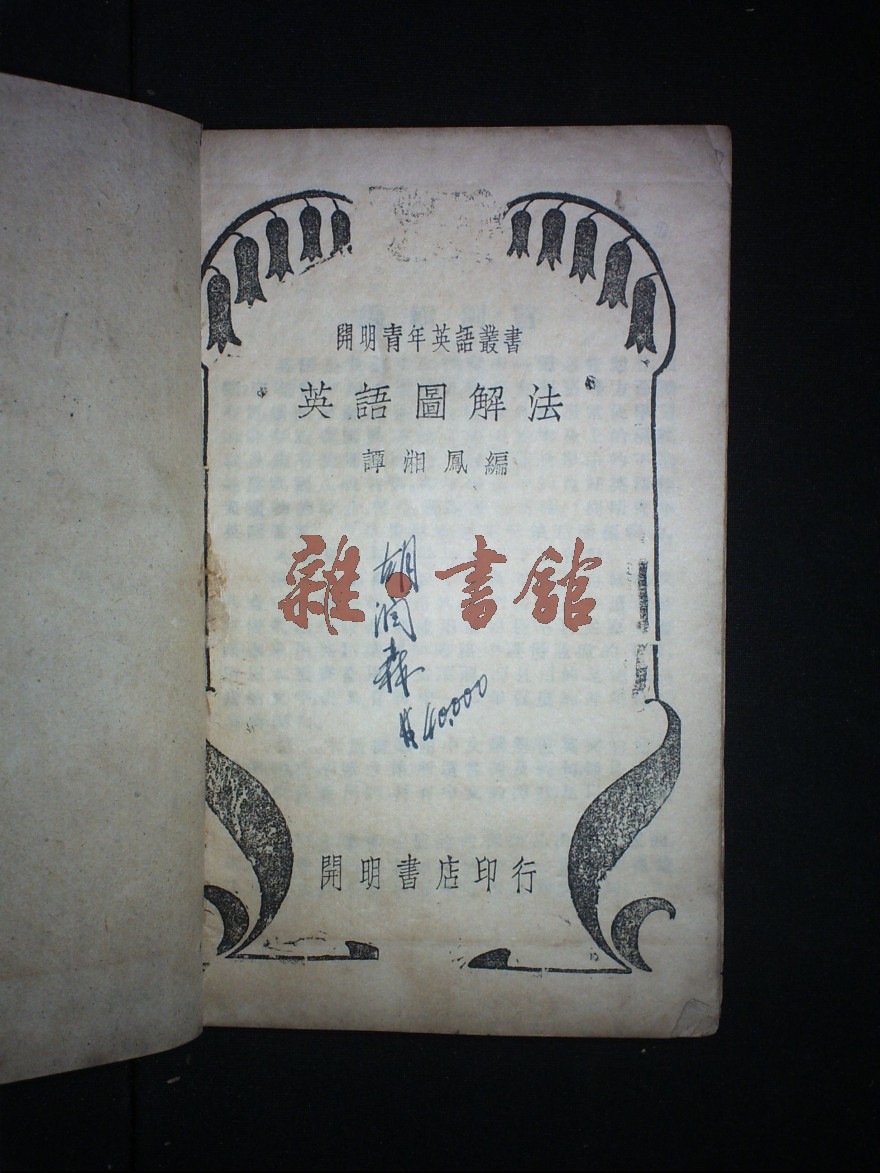 開明青年英語叢書
英語圖解法
譚湘鳳編
雜·書館
胡润森
40,000
開明書店印行